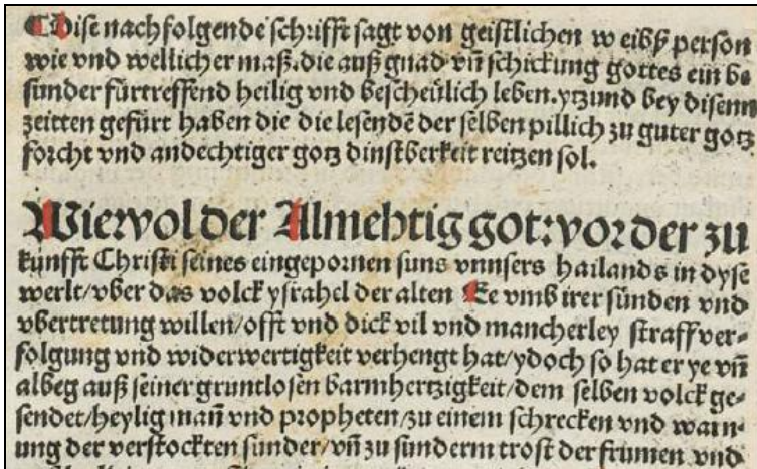 Dise nachfolgende schrifft sagt von geistlichen weibß person
wie vnd wellicher maß. die auß gnad vñ schickung gottes ein be
sunder fürtreffend heilig vnd bescheülich leben. ytzund bey disenn
zeitten gefürt haben die die lesendē der selben pillich zu guter gotz
forcht vnd andechtiger gotz dinstberkeit reitzen sol.
Wiewol der Allmehtig got: vor der zu
kunfft Christi seines eingepornen suns vnnsers hailands in dyse
werlt/vber das volck ysrahel der alten Ee vmb irer sünden vnd
vbertretung willen/offt vnd dick vil vnd mancherley straff ver-
folgung vnd widerwertigkeit verhengt hat/ydoch so hat er ye vñ
albeg auß seiner gruntlosen barmhertzigkeit/dem selben volck ge-
sendet/heylig mañ vnd propheten/zu einem schrecken vnd warn-
ung der verstockten sunder/vñ zu sunderm trost der frumen vnd